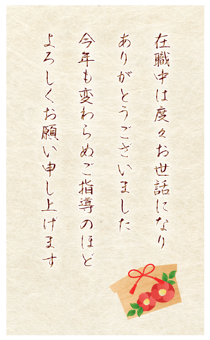 在職中は度々お世話になり
ありがとうございました
今年も変わらぬご指導のほど
よろしくお願い申し上げます